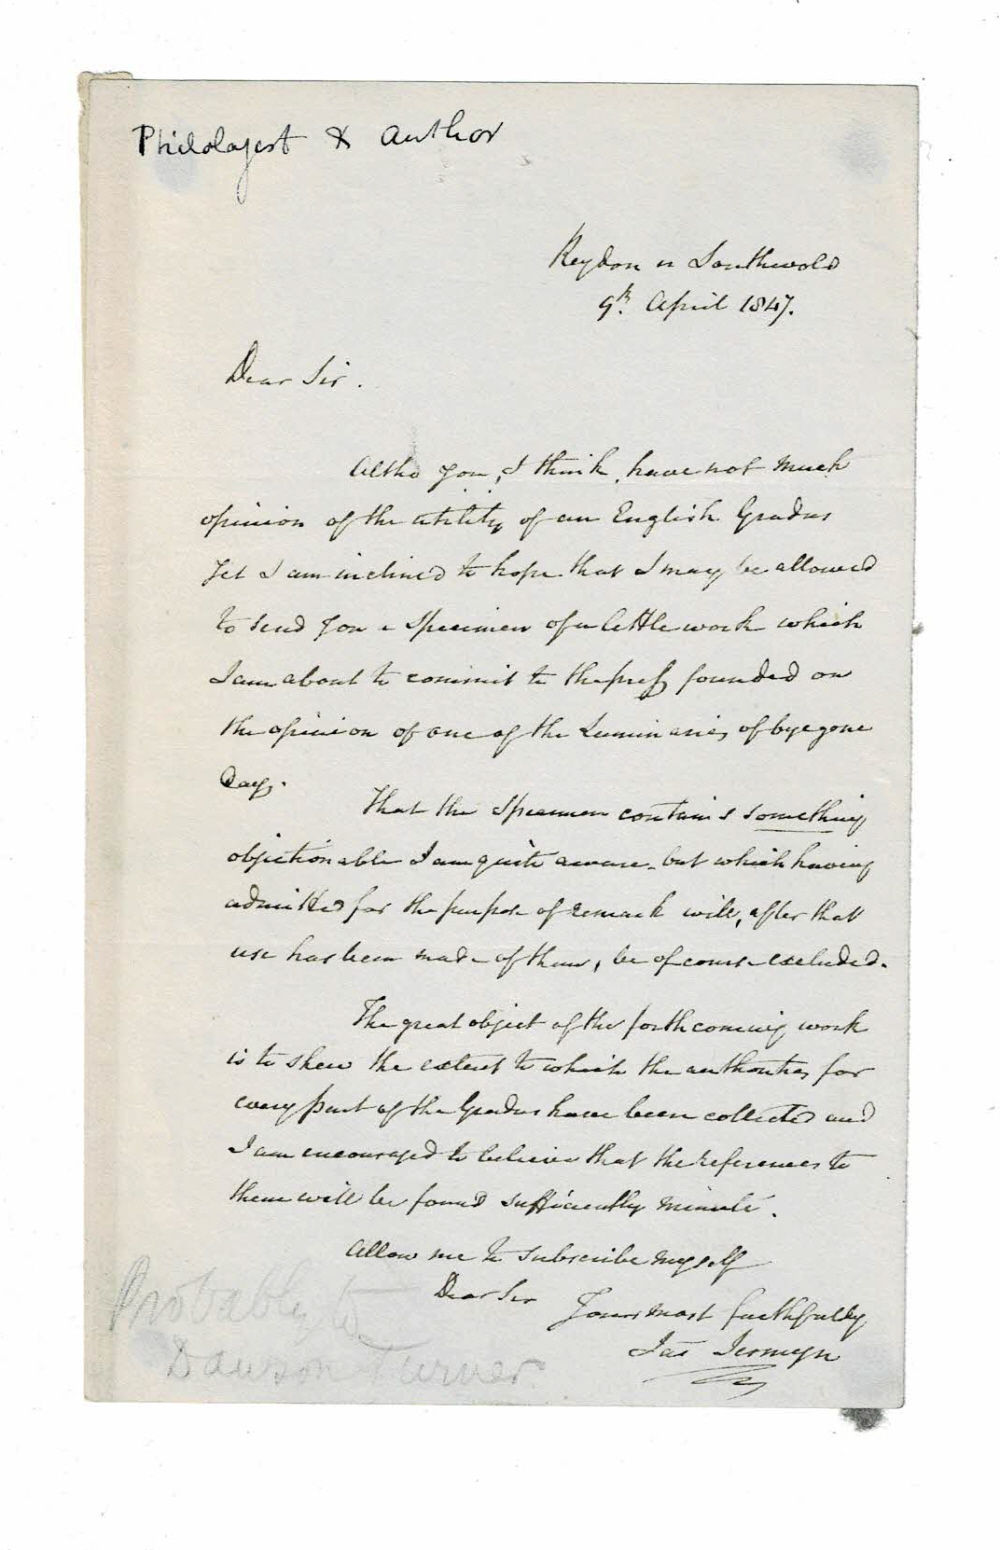 Philologist & author
Reydon n Southwold
9th April 1847.
Dear Sir.
Altho you, I think, have not much
opinion of the utility of an English Gradus
Yet I am inclined to hope that I may be allowed
to send you a Specimen of a little work which
I am about to commit to the press founded on
the opinion of one of the Luminaries of bye gone
Days.
That the Specimen contains something
objectionable I am quite aware - but which having
admitted for the purpose of remark will, after that
use has been made of them, be of course excluded.
The great object of the forthcoming work
is to shew the extent to which the authorities for
every part of the Gradus have been collected and
I am encouraged to believe that the references to
them will be found sufficiently minute.
Allow me to subscribe myself
Dear Sir
Yours most faithfully
Jas Jermyn
Probably to
Dawson Turner